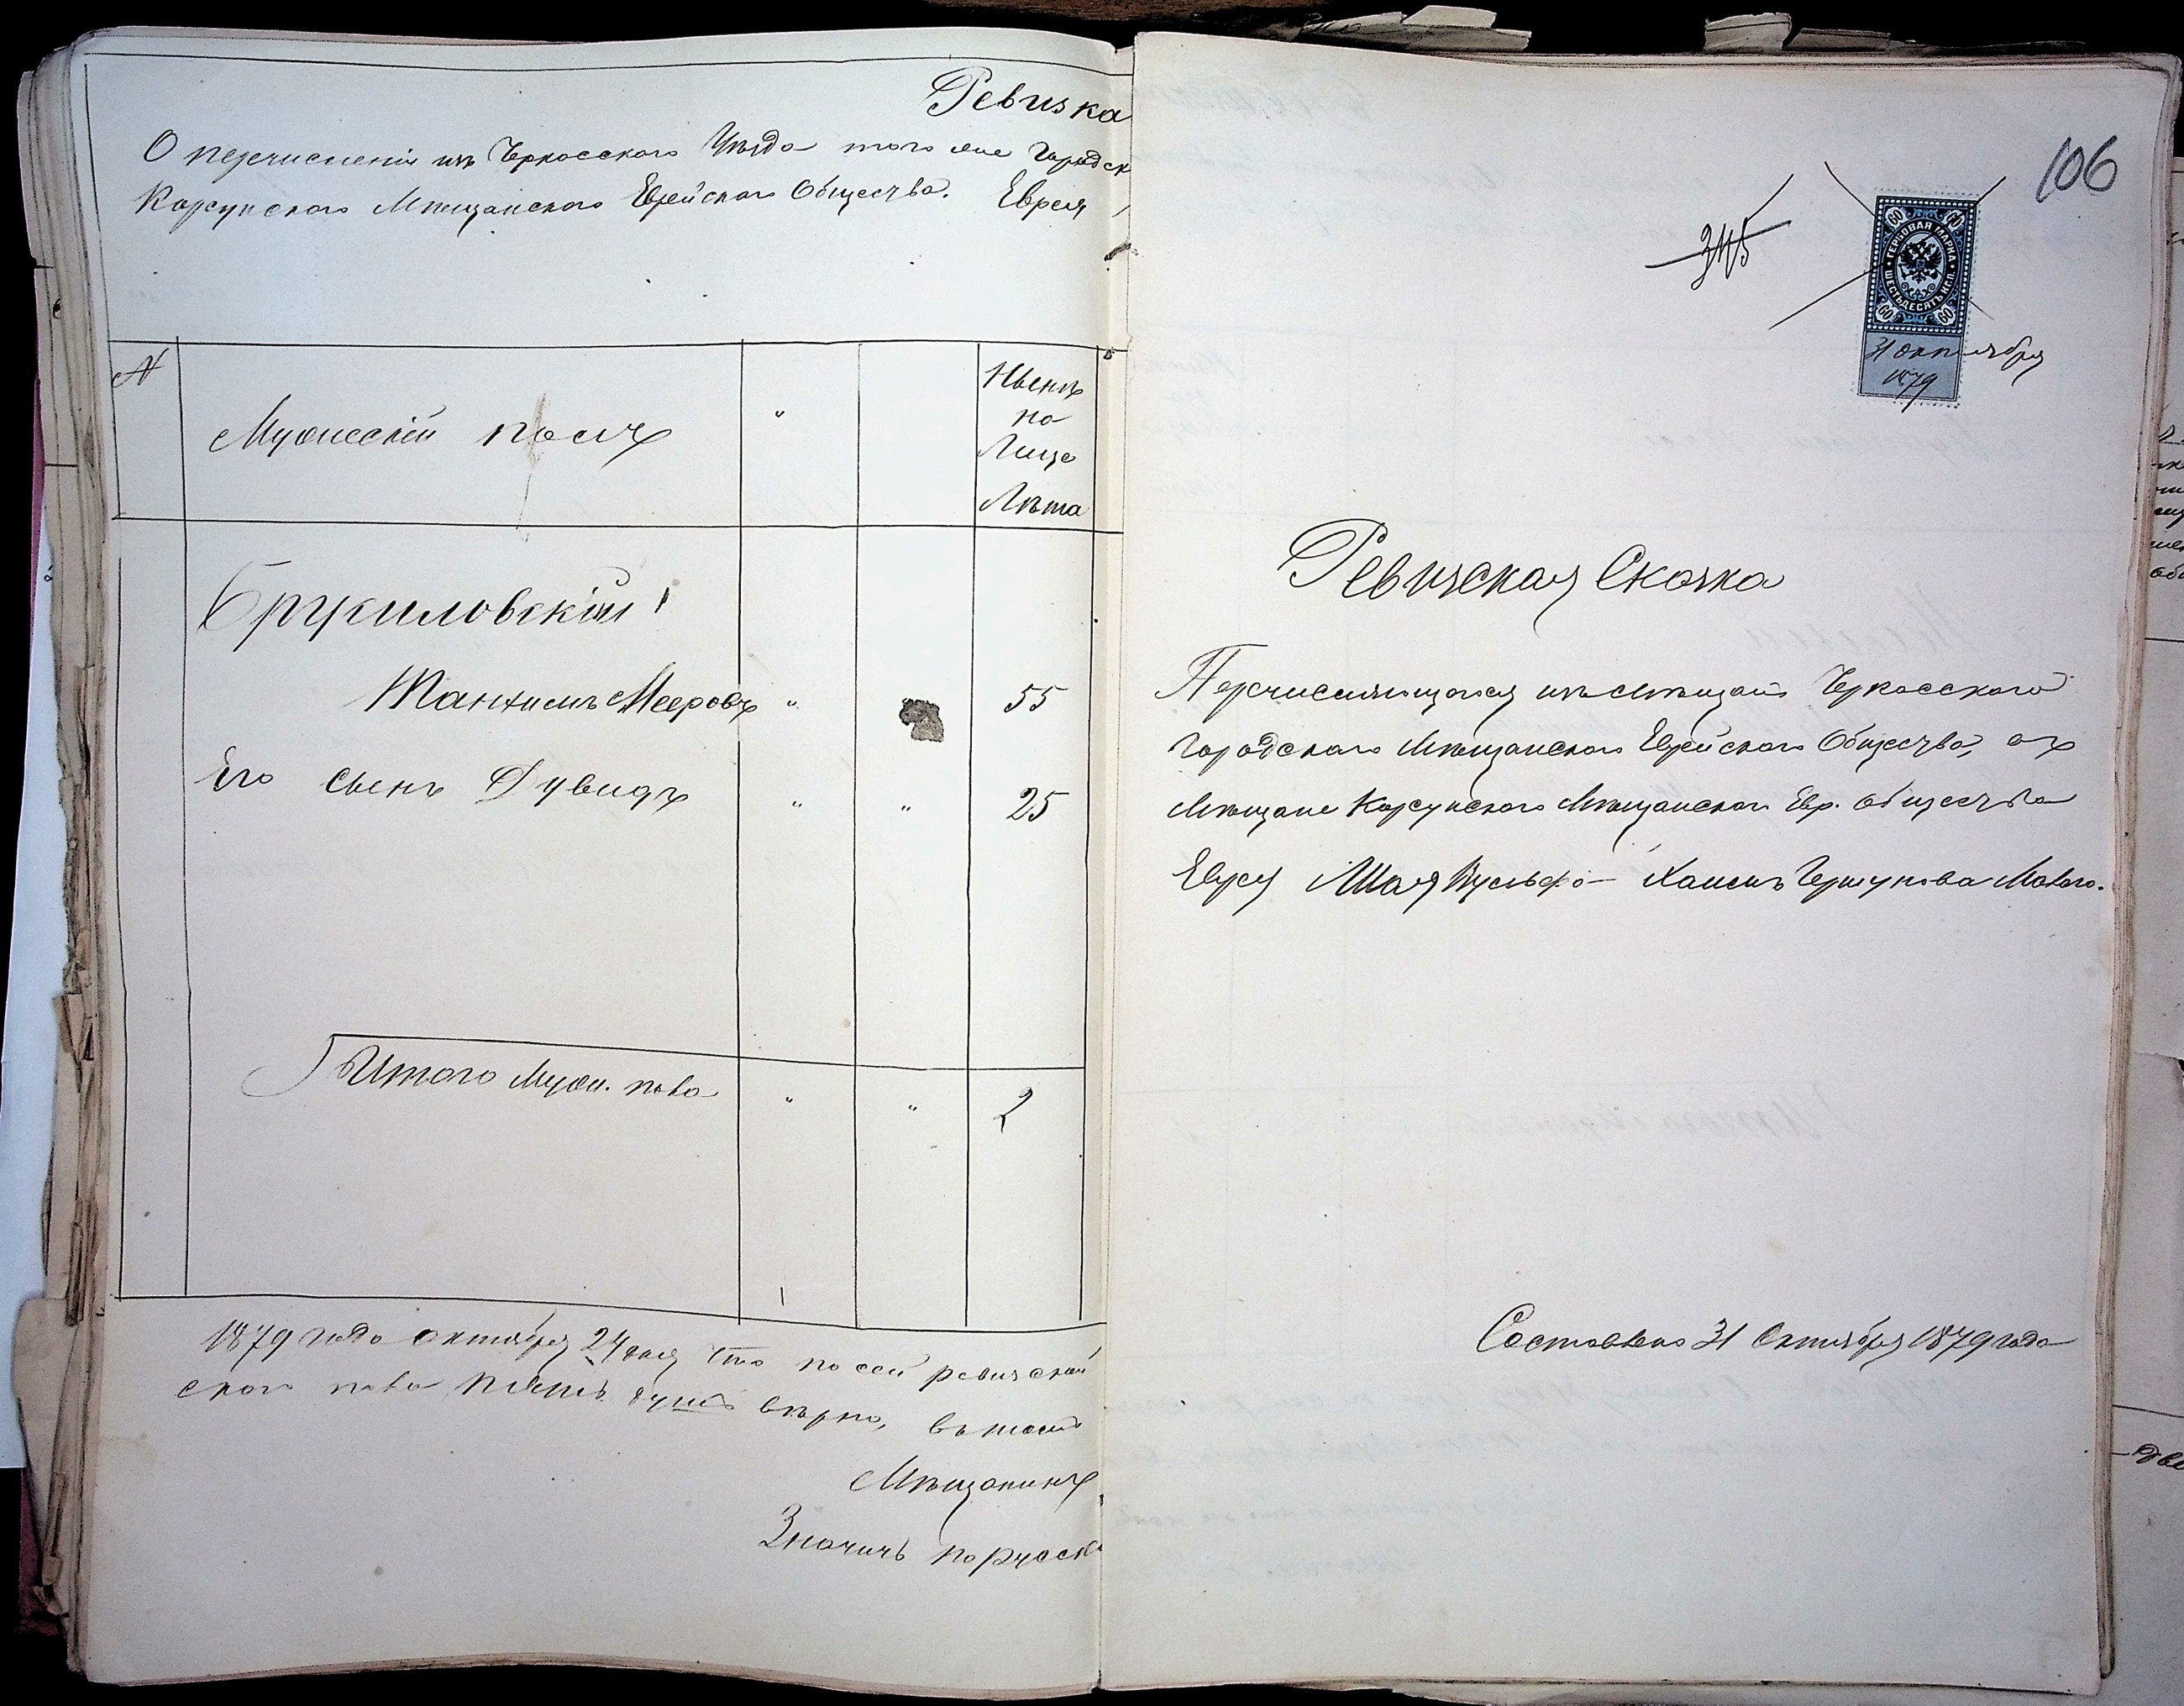 Ревизка
О перечисленіи изъ Черкасскаго Уѣзда того же Городск
Корсунскаго Мѣщанскаго Еврейскаго Общества. Еврея
N
Мужескій полъ
"
Нынѣ
на
Лицо
Лѣта
Брусиловскій
Танхимъ Мееровъ " 55
Его сынъ Дувидъ " " 25
Итого Муж. пола " " 2
1879 года Октября 24 дня что по сей ревизской
скаго пола пять душъ вѣрно, въ томъ
Мѣщанинъ
Значитъ по Русск
106
345
60 60
ГЕРБОВАЯ МАРКА
ШЕСТЬДЕСЯТЪ КОП.
60 60
31 Октября
1879
Ревизская Сказка
Перечисляющагося изъ мѣщанъ Черкасскаго
Городскаго Мѣщанскаго Еврейскаго Общества, въ
Мѣщане Корсунскаго Мѣщанскаго Евр. Общества
Еврея Шая Вульфа - Хаимъ Гершунова Малаго.
Составлена 31 Октября 1879 года